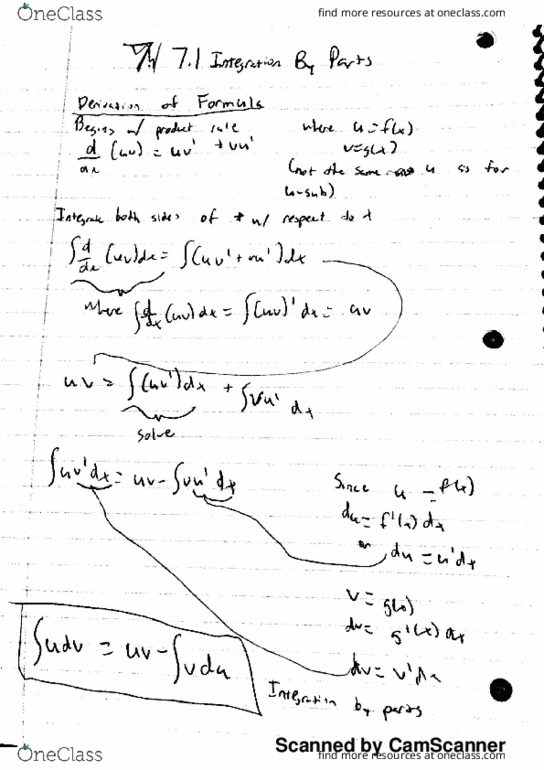 OneClass
find more resources at oneclass.com
7.1 Integration By Parts
Derivation of Formula
Begins w/ product rule
where u = f(x)
d/dx (uv) = uv' + vu'
v = g(x)
(not the same u as for
u-sub)
Integrate both sides of * w/ respect to x
∫ d/dx (uv)dx = ∫(uv' + vu')dx
where ∫ d/dx (uv) dx = ∫(uv)' dx = uv
uv = ∫(uv')dx + ∫vu' dx
solve
∫uv'dx = uv - ∫vu'dx
Since u = f(x)
du = f'(x) dx
or du = u'dx
v = g(x)
dv = g'(x) dx
dv = v'dx
∫udv = uv - ∫vdu
Integration by parts
Scanned by CamScanner
OneClass
find more resources at oneclass.com